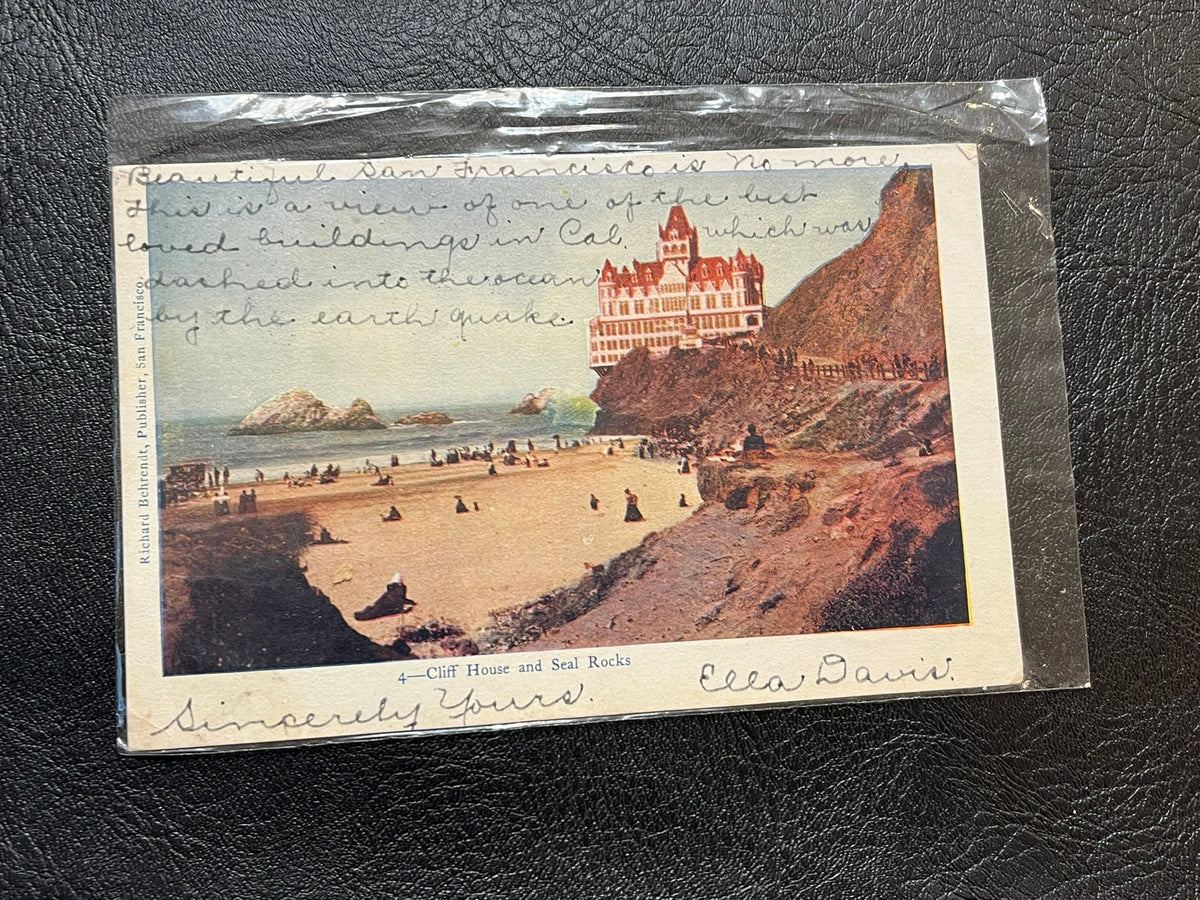 Beautiful San Francisco is No more.
this is a view of one of the best
loved buildings in Cal. which was
dashed into the ocean
by the earth quake.
Richard Behrendt, Publisher, San Francisco
4—Cliff House and Seal Rocks
Sincerely Yours.
Ella Davis.